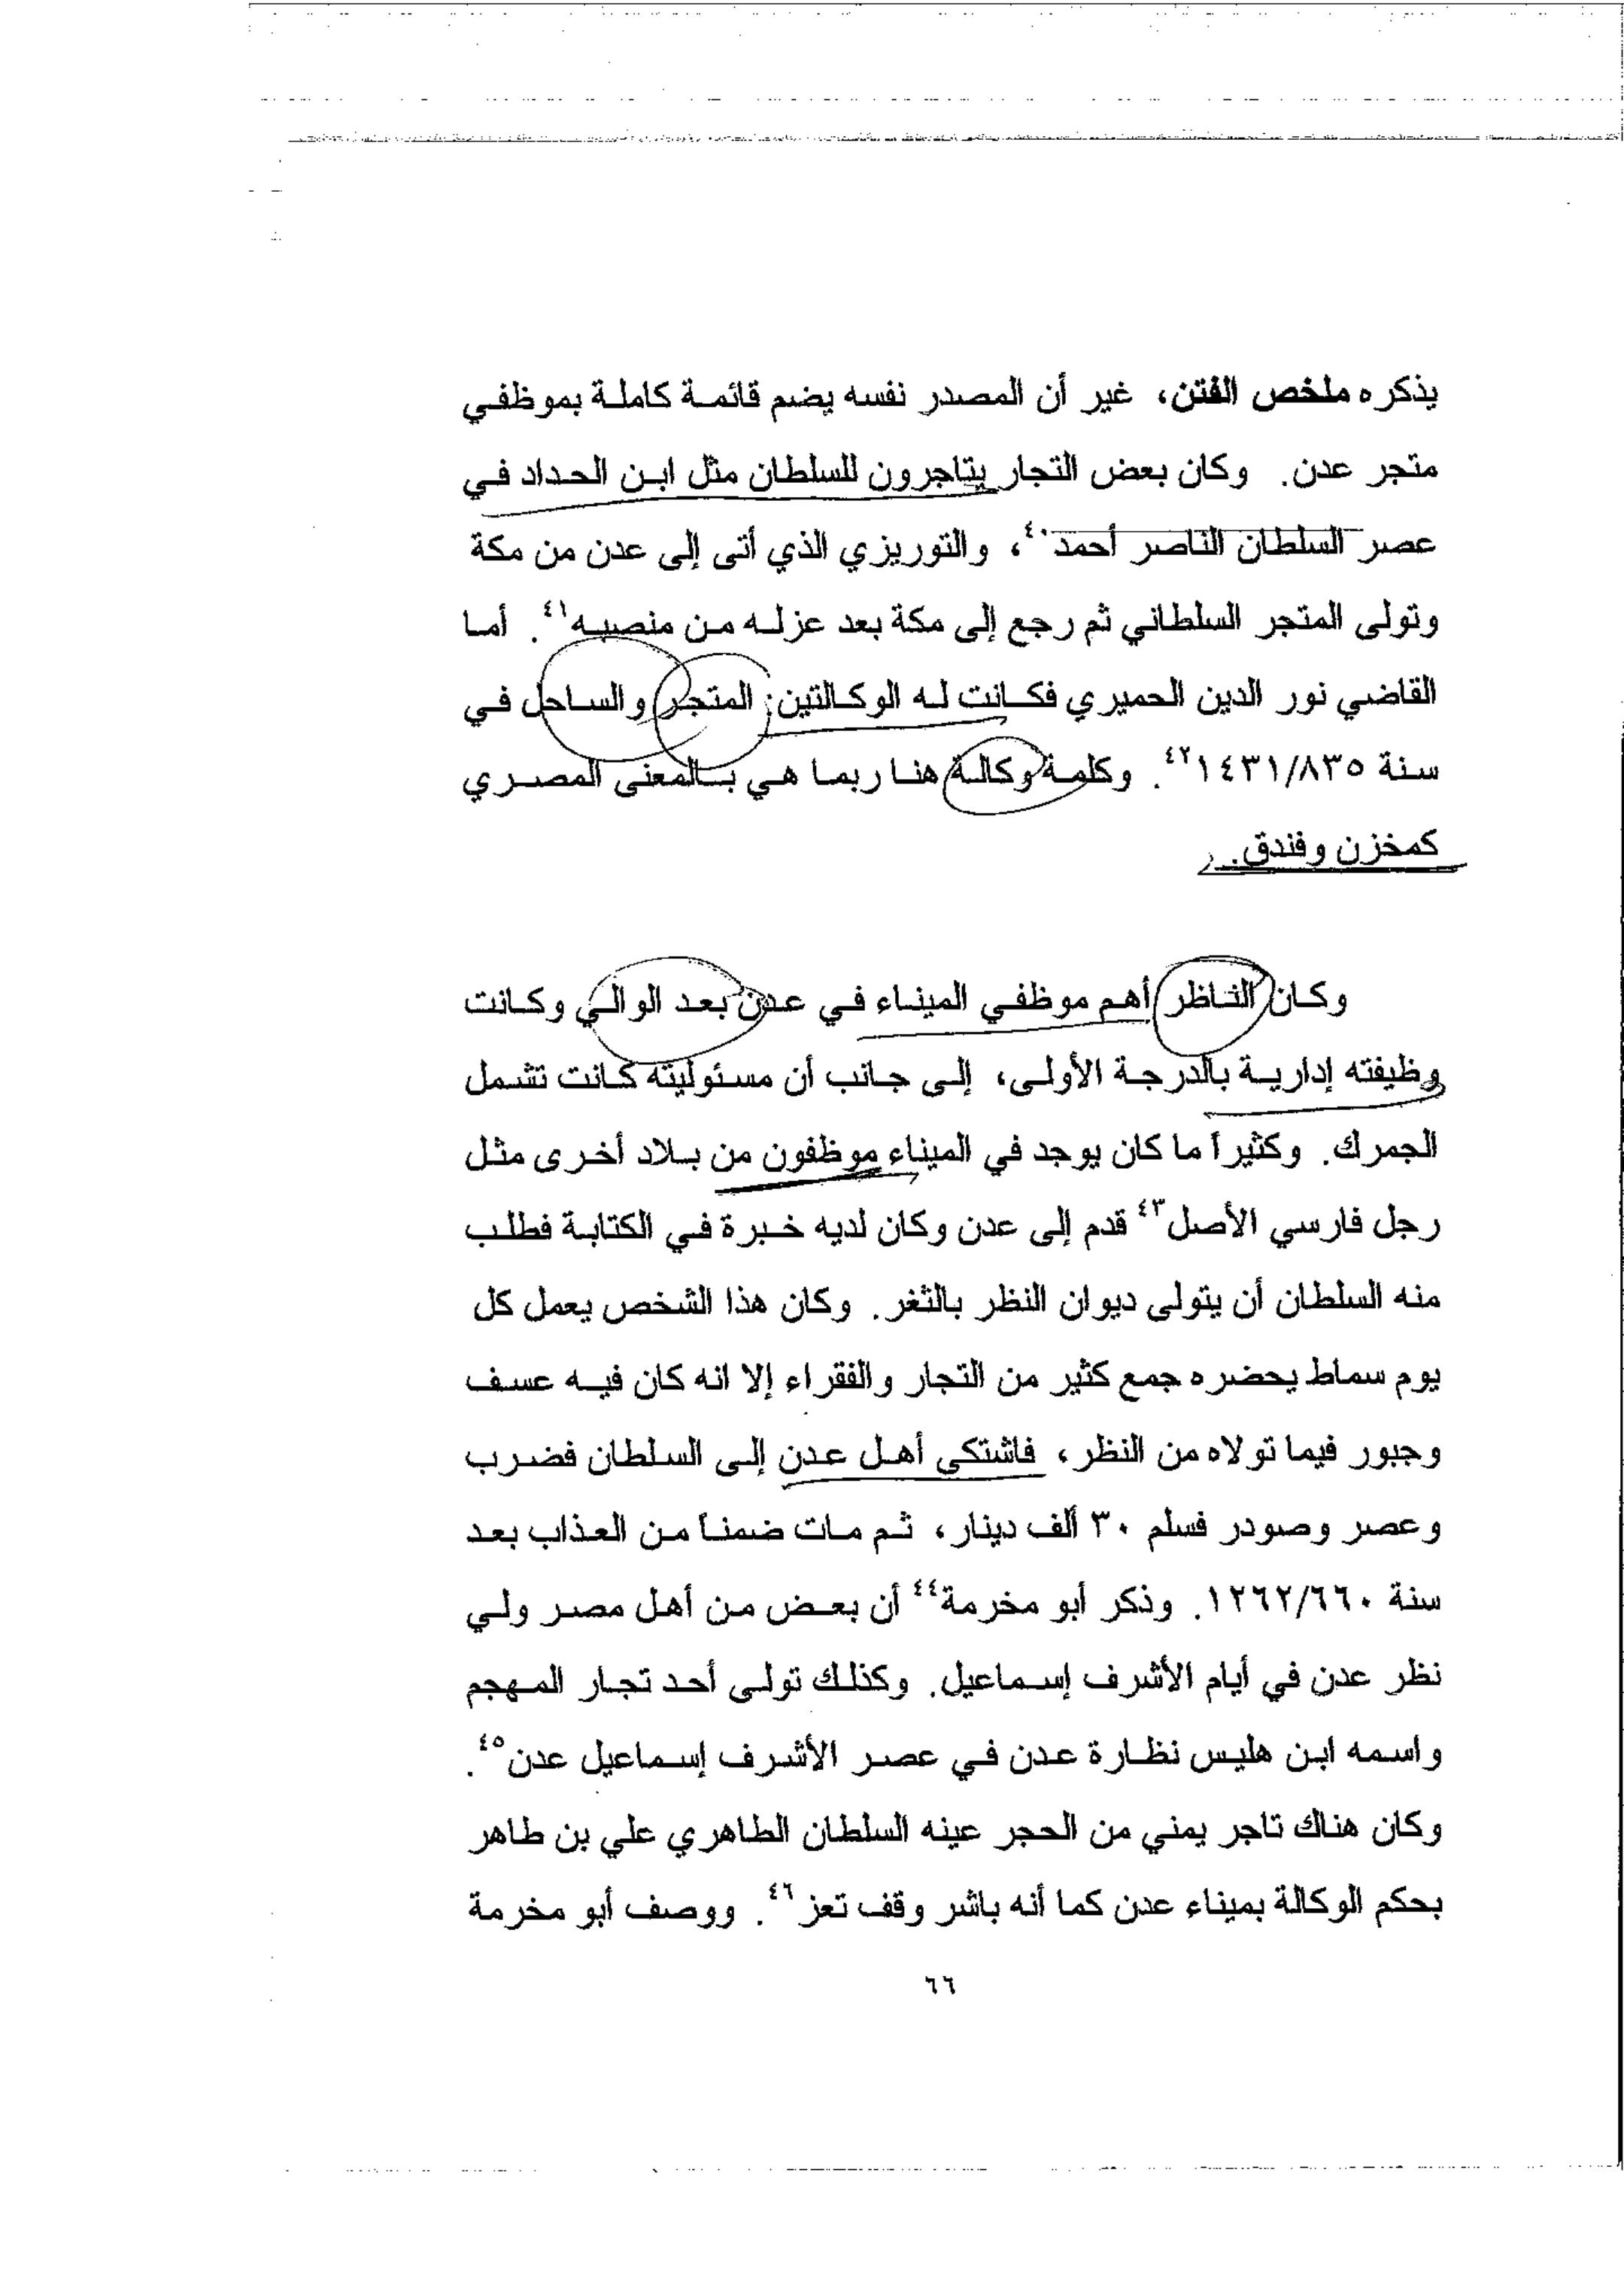 يذكره ملخص الفتن، غير أن المصدر نفسه يضم قائمة كاملة بموظفي
متجر عدن. وكان بعض التجار يتاجرون للسلطان مثل ابن الحداد في
عصر السلطان الناصر أحمد٤٠، والتوريزي الذي أتى إلى عدن من مكة
وتولى المتجر السلطاني ثم رجع إلى مكة بعد عزله من منصبه٤١. أما
القاضي نور الدين الحميري فكانت له الوكالتين: المتجر والساحل في
سنة ١٤٣١/٨٣٥٤٢. وكلمة وكالة هنا ربما هي بالمعنى المصري
كمخزن وفندق.
وكان الناظر أهم موظفي الميناء في عدن بعد الوالي وكانت
وظيفته إدارية بالدرجة الأولى، إلى جانب أن مسئوليته كانت تشمل
الجمرك. وكثيراً ما كان يوجد في الميناء موظفون من بلاد أخرى مثل
رجل فارسي الأصل٤٣ قدم إلى عدن وكان لديه خبرة في الكتابة فطلب
منه السلطان أن يتولى ديوان النظر بالثغر. وكان هذا الشخص يعمل كل
يوم سماط يحضره جمع كثير من التجار والفقراء إلا انه كان فيه عسف
وجبور فيما تولاه من النظر، فاشتكى أهل عدن إلى السلطان فضرب
وعصر وصودر فسلم ٣٠ ألف دينار، ثم مات ضمناً من العذاب بعد
سنة ١٢٦٢/٦٦٠. وذكر أبو مخرمة٤٤ أن بعض من أهل مصر ولي
نظر عدن في أيام الأشرف إسماعيل. وكذلك تولى أحد تجار المهجم
واسمه ابن هليس نظارة عدن في عصر الأشرف إسماعيل عدن٤٥.
وكان هناك تاجر يمني من الحجر عينه السلطان الطاهري علي بن طاهر
بحكم الوكالة بميناء عدن كما أنه باشر وقف تعز٤٦. ووصف أبو مخرمة
٦٦